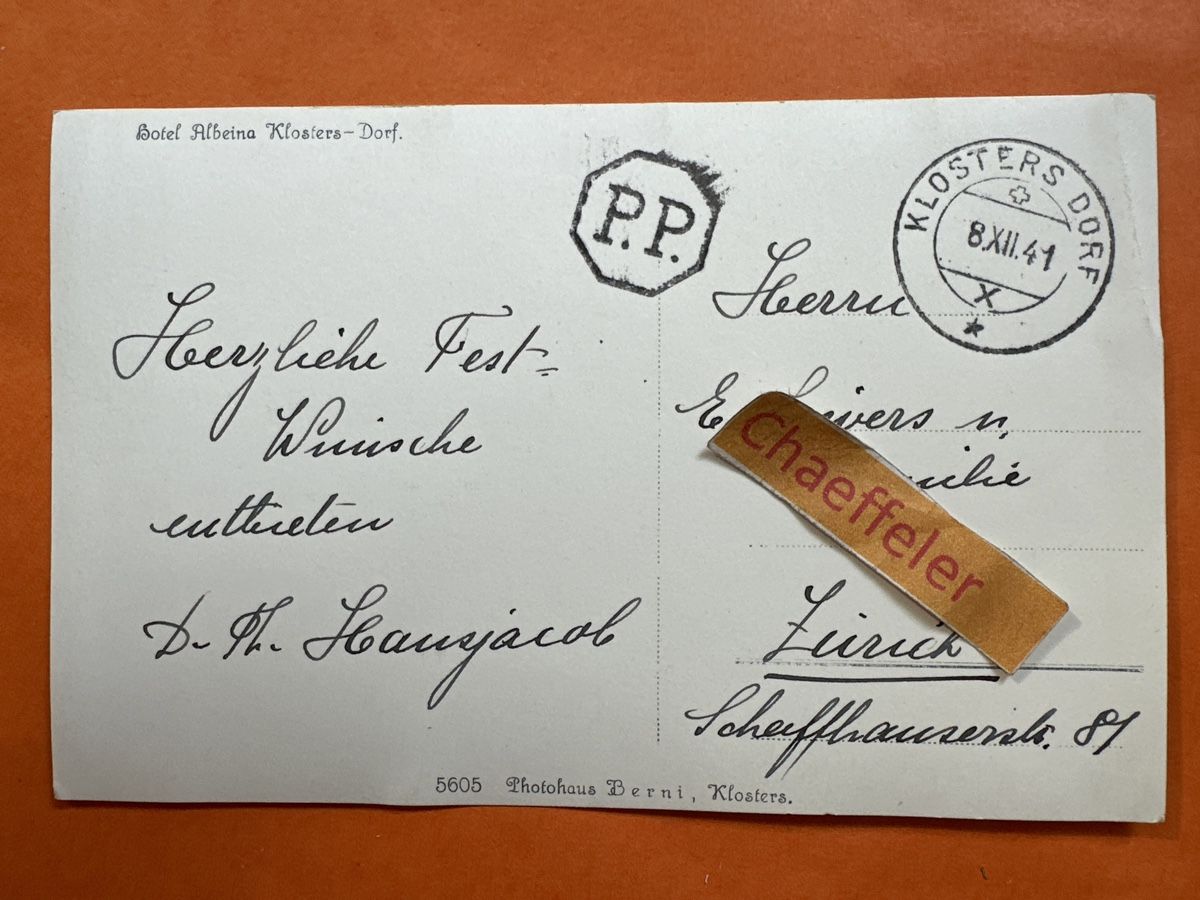 Hotel Albeina Klosters-Dorf.
P.P.
KLOSTERS DORF
8.XII.41
X
Herzliche Fest-
Wünsche
entbieten
D. Ph. Hansjacob
Herrn
E. u.
Chaeffeler
Zürich
Schaffhauserstr. 81
5605 Photohaus Berni, Klosters.